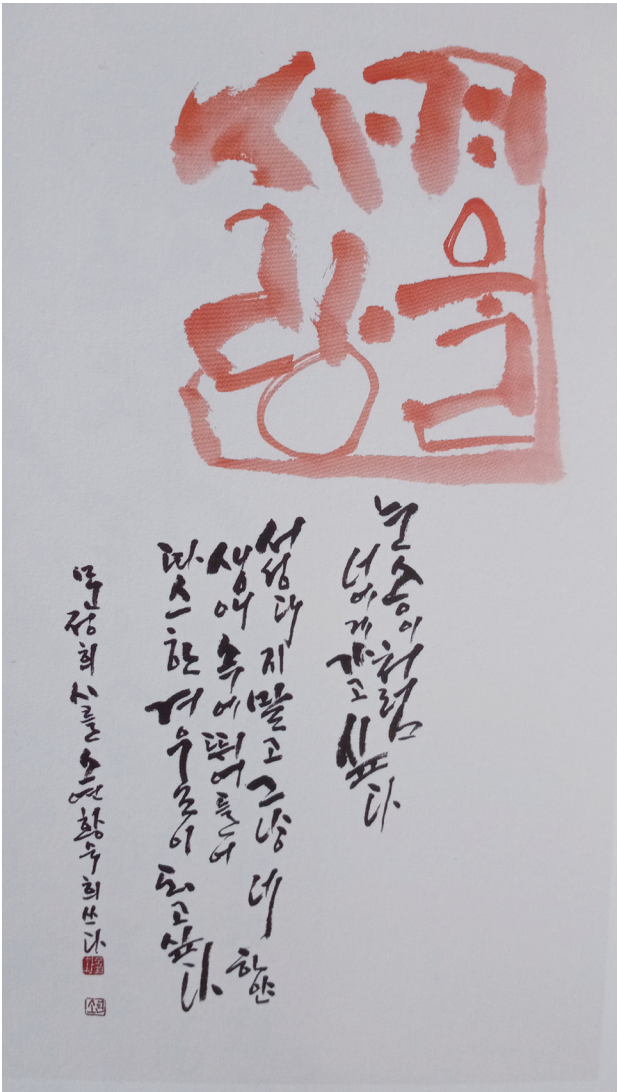 겨울
사랑
눈송이처럼
너에게 가고 싶다
서성대지 말고 그냥 네 하얀
생애 속에 뛰어들어
따스한 겨울이 되고 싶다
문정희 시를 소연 황숙희 쓰다